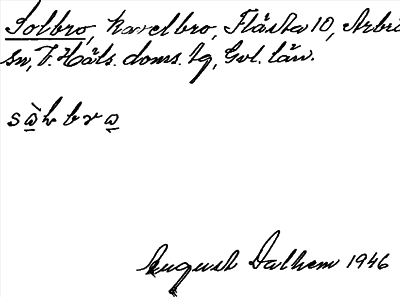 Solbro, kavelbro, Flästa 10, Arbrå
sn, V. Häls. doms. lg, Gvl. län.
sàhbra
August Dalhem 1946